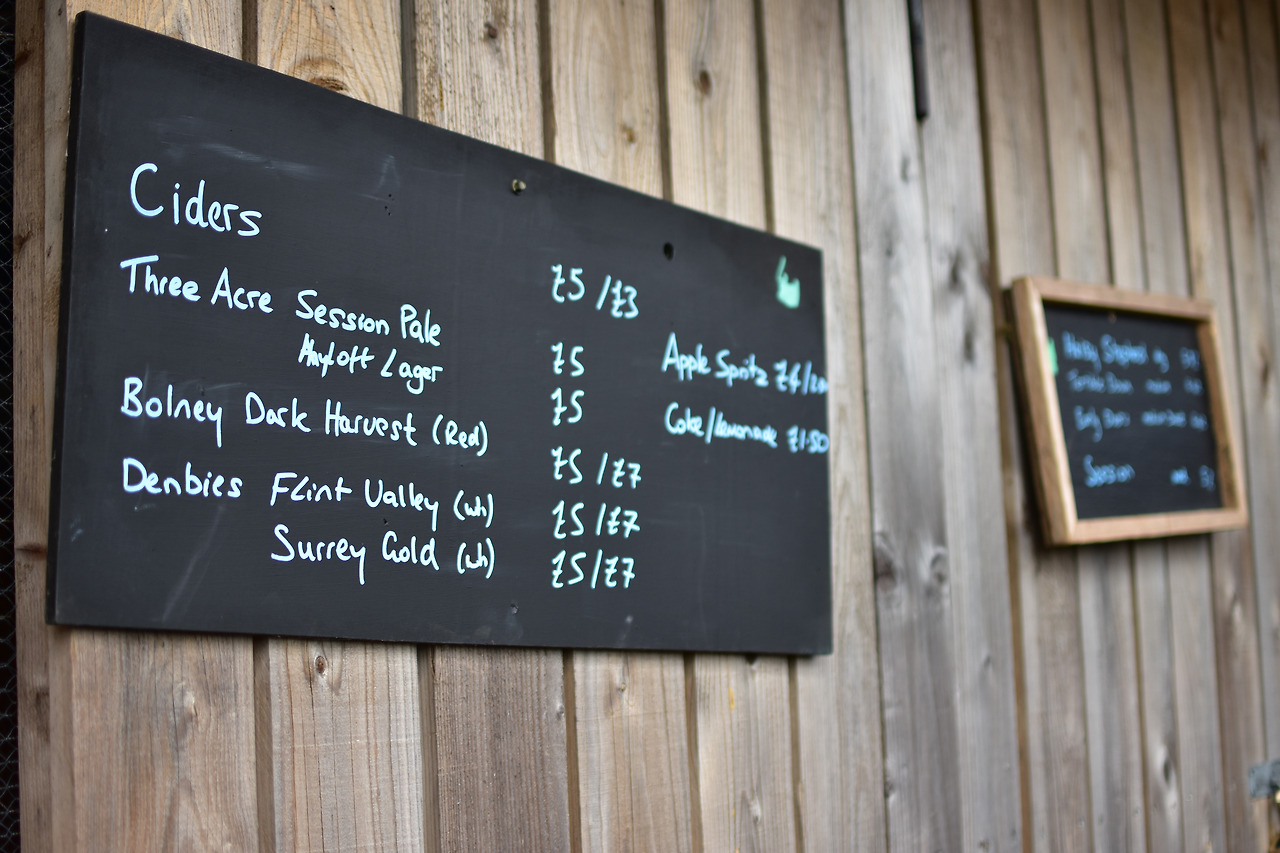 Ciders £5/£3
Three Acre Session Pale £5
Hayloft Lager £5
Bolney Dark Harvest (Red) £5/£7
Denbies Flint Valley (wh) £5/£7
Surrey Gold (wh) £5/£7
Apple Spritz £4/20
Coke/lemonade £1.50
Session